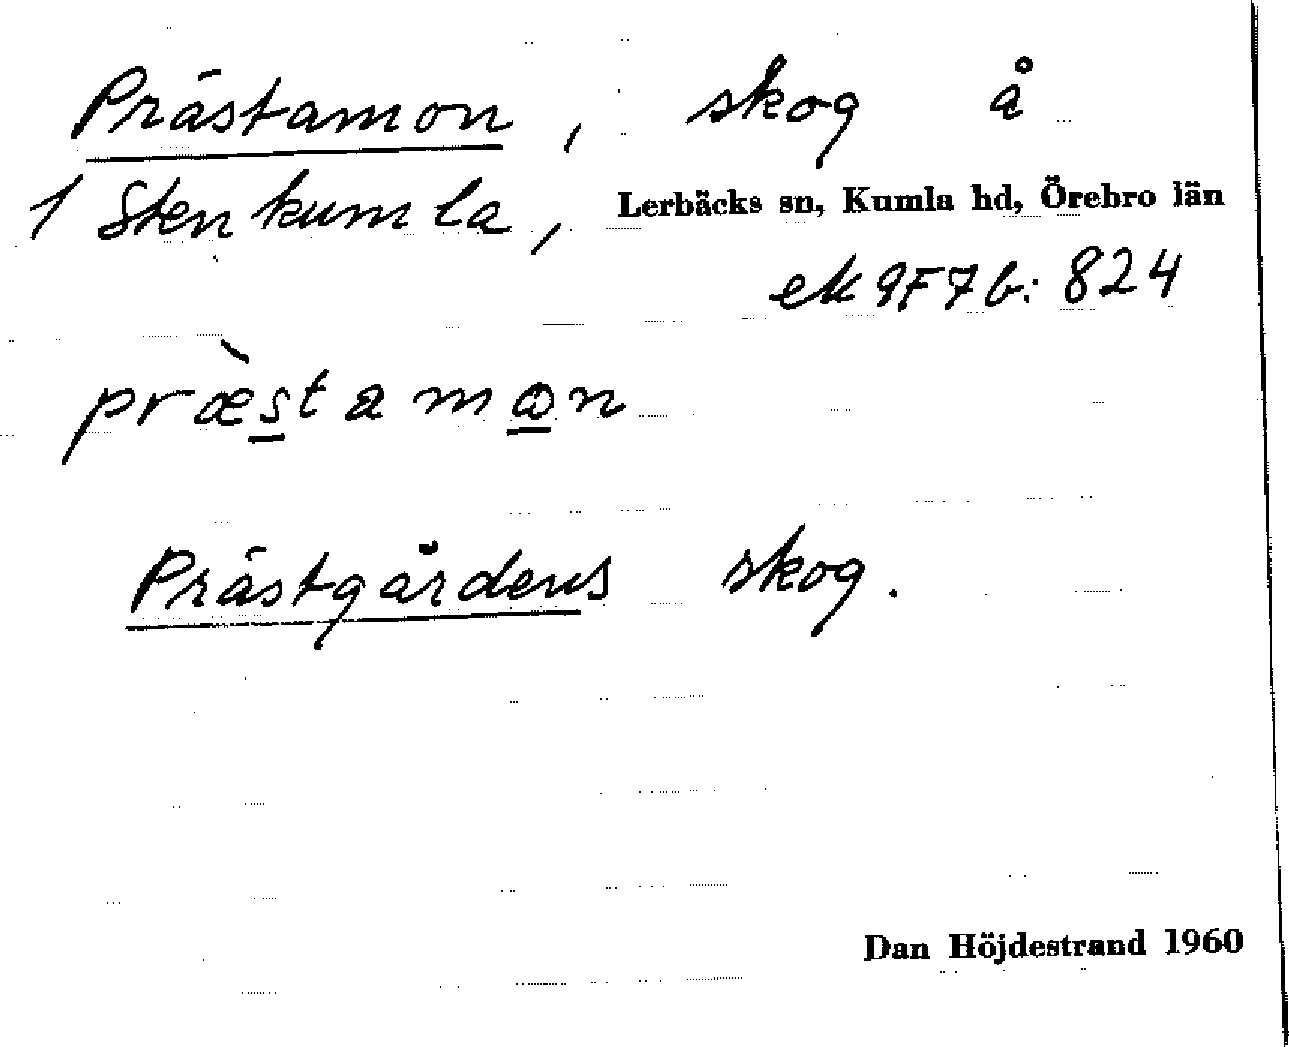 Prästamon, skog å
1 Stenkumla, Lerbäcks sn, Kumla hd, Örebro län
ek 9F7b: 824
præ̀stamɷn
Prästgårdens skog.
Dan Höjdestrand 1960